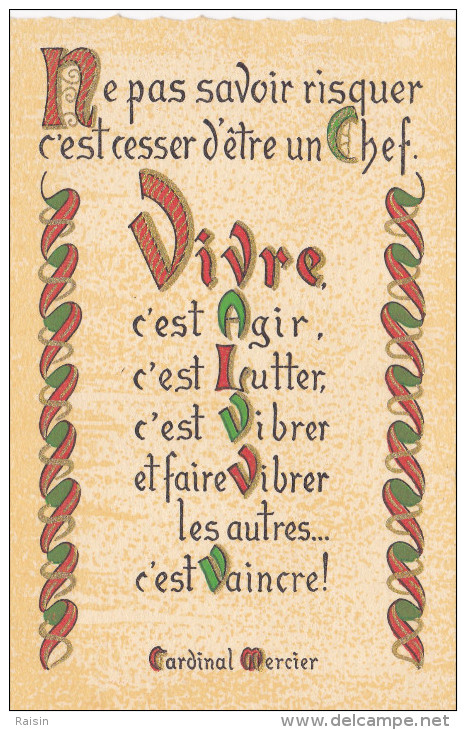 Ne pas savoir risquer
c'est cesser d'être un Chef.
Vivre,
c'est Agir,
c'est Lutter,
c'est Vibrer
et faire Vibrer
les autres...
c'est Vaincre!
Cardinal Mercier
Raisin
delcampe.net